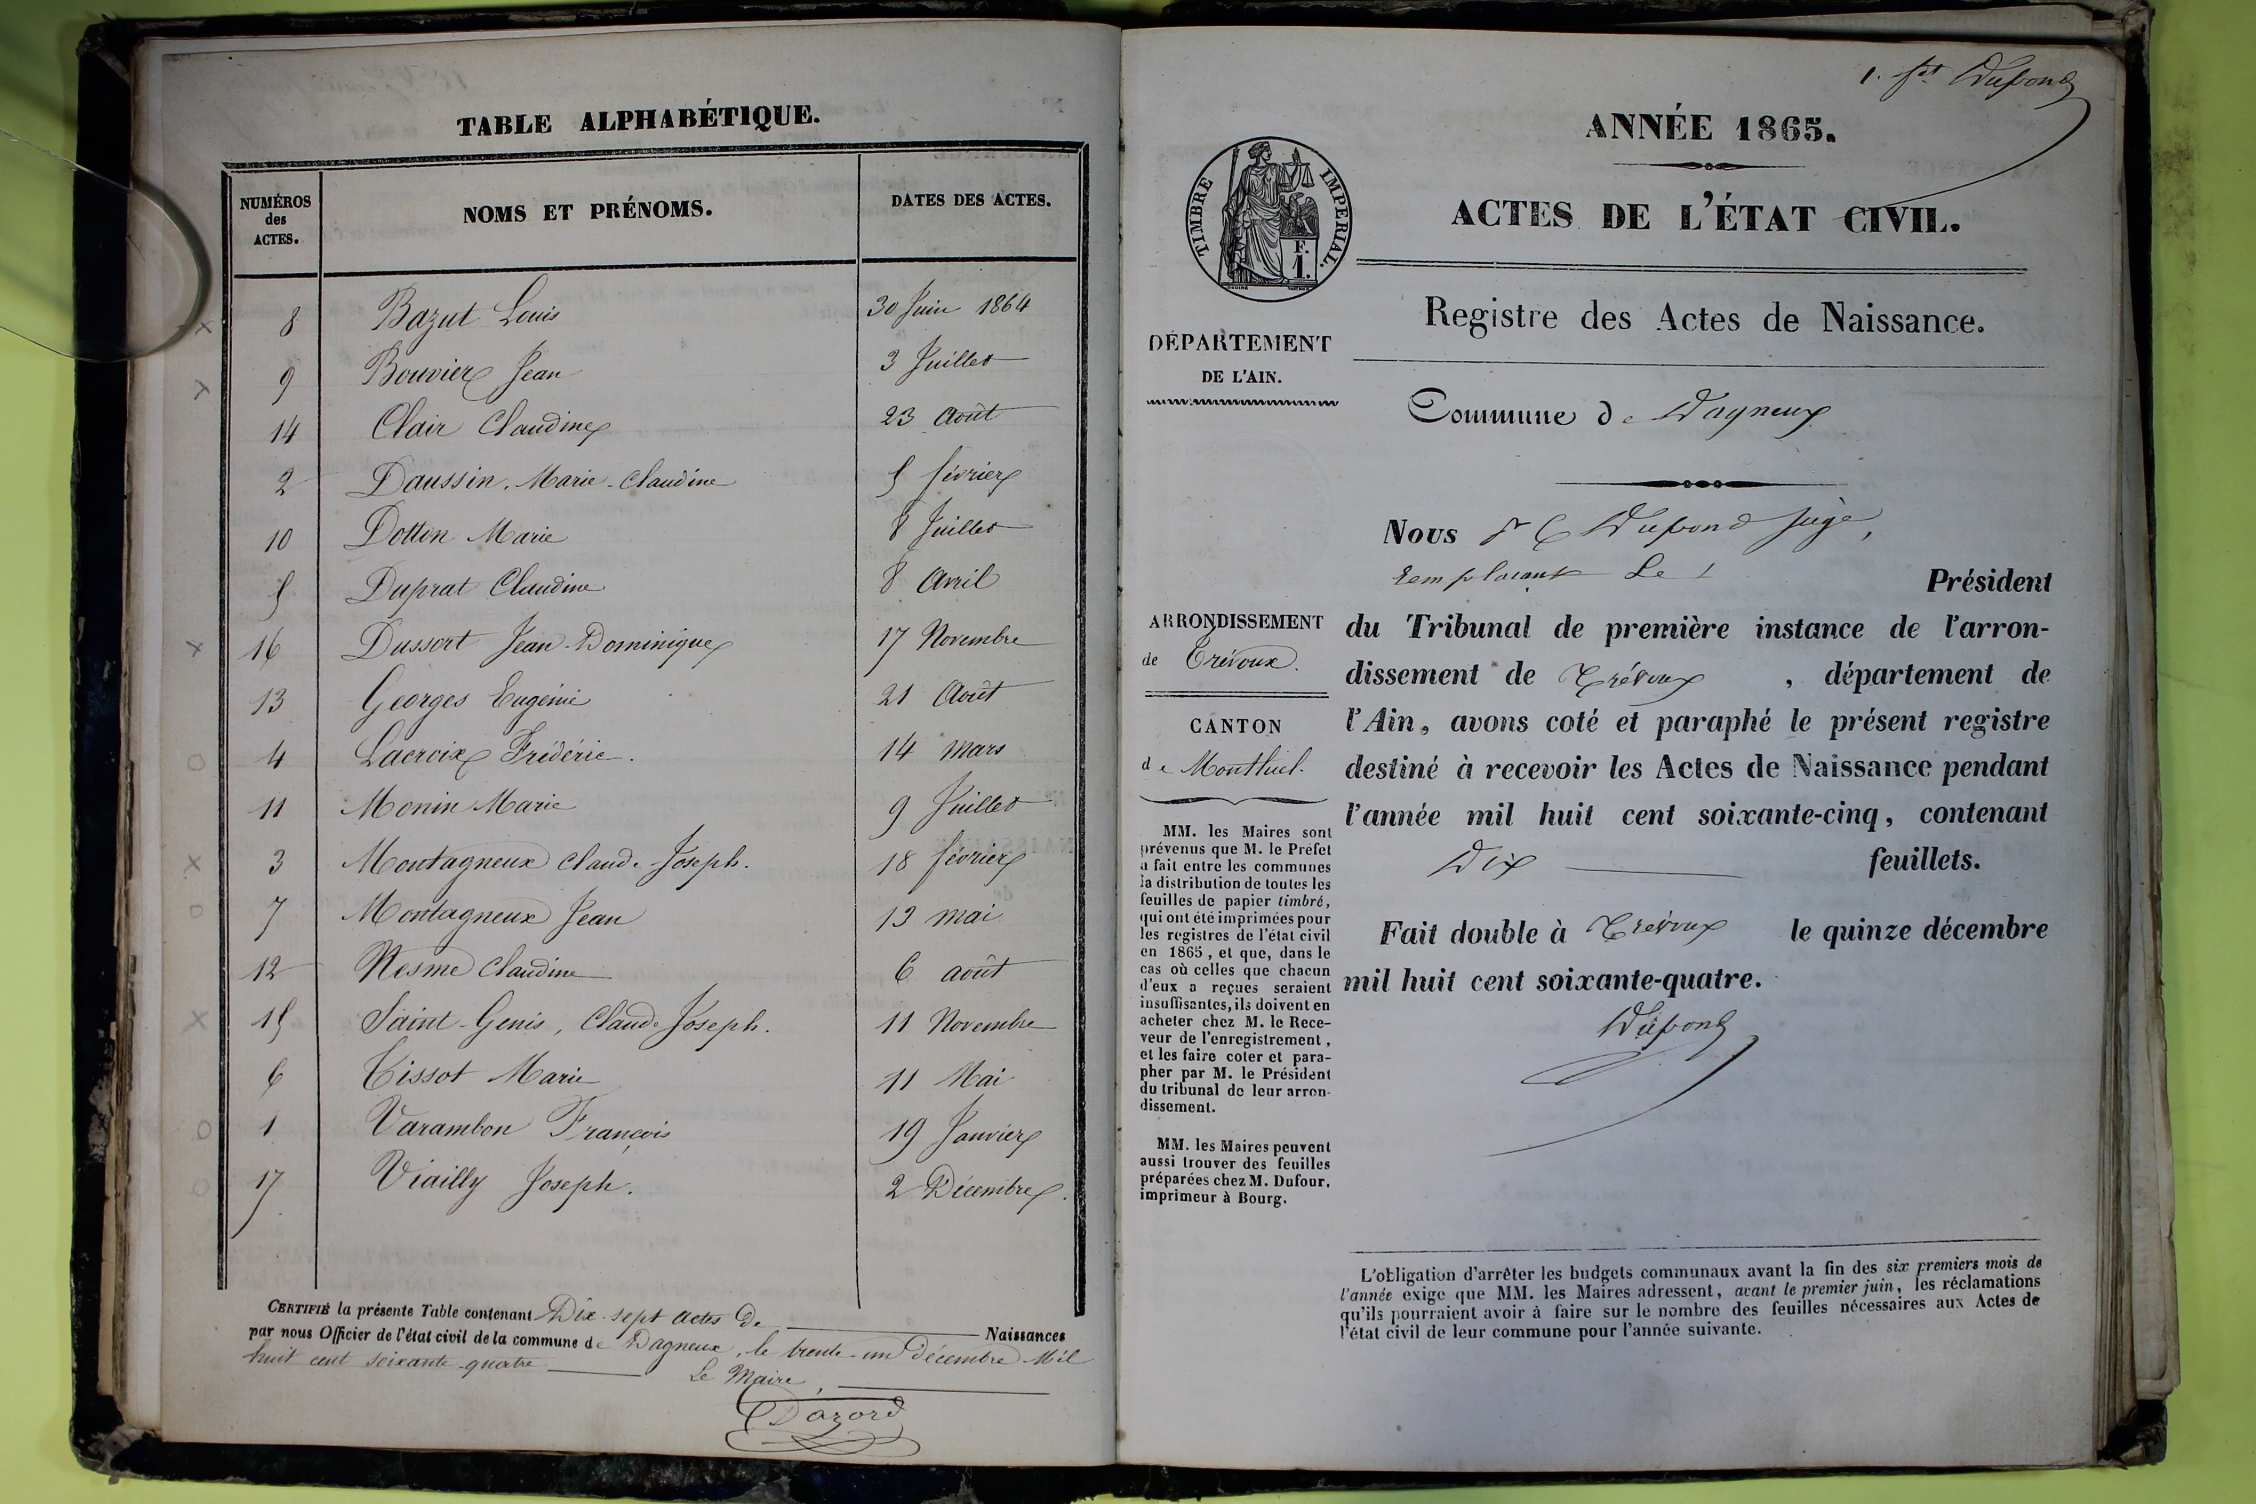 TABLE ALPHABÉTIQUE.
NUMÉROS des ACTES. NOMS ET PRÉNOMS. DATES DES ACTES.
8 Bazut Louis 30 Juin 1864
9 Bouvier Jean 3 Juillet
14 Clair Claudine 23 Août
2 Daussin. Marie-Claudine 5 février
10 Dotton Marie 8 Juillet
5 Duprat Claudine 8 Avril
16 Dussort Jean-Dominique 17 Novembre
13 Georges Eugénie 21 Août
4 Lacroix Frédéric. 14 mars
11 Monin Marie 9 Juillet
3 Montagneux Claude-Joseph. 18 février
7 Montagneux Jean 13 mai
12 Nesme Claudine 6 août
15 Saint-Genis, Claude Joseph. 11 Novembre
6 Tissot Marie 11 Mai
1 Varambon François 19 Janvier
17 Viailly Joseph. 2 Décembre.
CERTIFIÉ la présente Table contenant Dix-sept actes de Naissances
par nous Officier de l'état civil de la commune de Dagneux, le trente-un Décembre Mil
huit cent soixante-quatre
Le Maire,
Dazord
1. ft Dupond
ANNÉE 1865.
ACTES DE L'ÉTAT CIVIL.
TIMBRE IMPERIAL.
F.
1.
Registre des Actes de Naissance.
DÉPARTEMENT
DE L'AIN.
Commune de Dagneux
ARRONDISSEMENT
de Trévoux.
CANTON
de Montluel.
MM. les Maires sont
prévenus que M. le Préfet
a fait entre les communes
la distribution de toutes les
feuilles de papier timbré,
qui ont été imprimées pour
les registres de l'état civil
en 1865, et que, dans le
cas où celles que chacun
d'eux a reçues seraient
insuffisantes, ils doivent en
acheter chez M. le Rece-
veur de l'enregistrement,
et les faire coter et para-
pher par M. le Président
du tribunal de leur arron-
dissement.
MM. les Maires peuvent
aussi trouver des feuilles
préparées chez M. Dufour,
imprimeur à Bourg.
Nous Dupond Juge,
remplaçant Le Président
du Tribunal de première instance de l'arron-
dissement de Trévoux, département de
l'Ain, avons coté et paraphé le présent registre
destiné à recevoir les Actes de Naissance pendant
l'année mil huit cent soixante-cinq, contenant
Dix feuillets.
Fait double à Trévoux le quinze décembre
mil huit cent soixante-quatre.
Dupond
L'obligation d'arrêter les budgets communaux avant la fin des six premiers mois de
l'année exige que MM. les Maires adressent, avant le premier juin, les réclamations
qu'ils pourraient avoir à faire sur le nombre des feuilles nécessaires aux Actes de
l'état civil de leur commune pour l'année suivante.